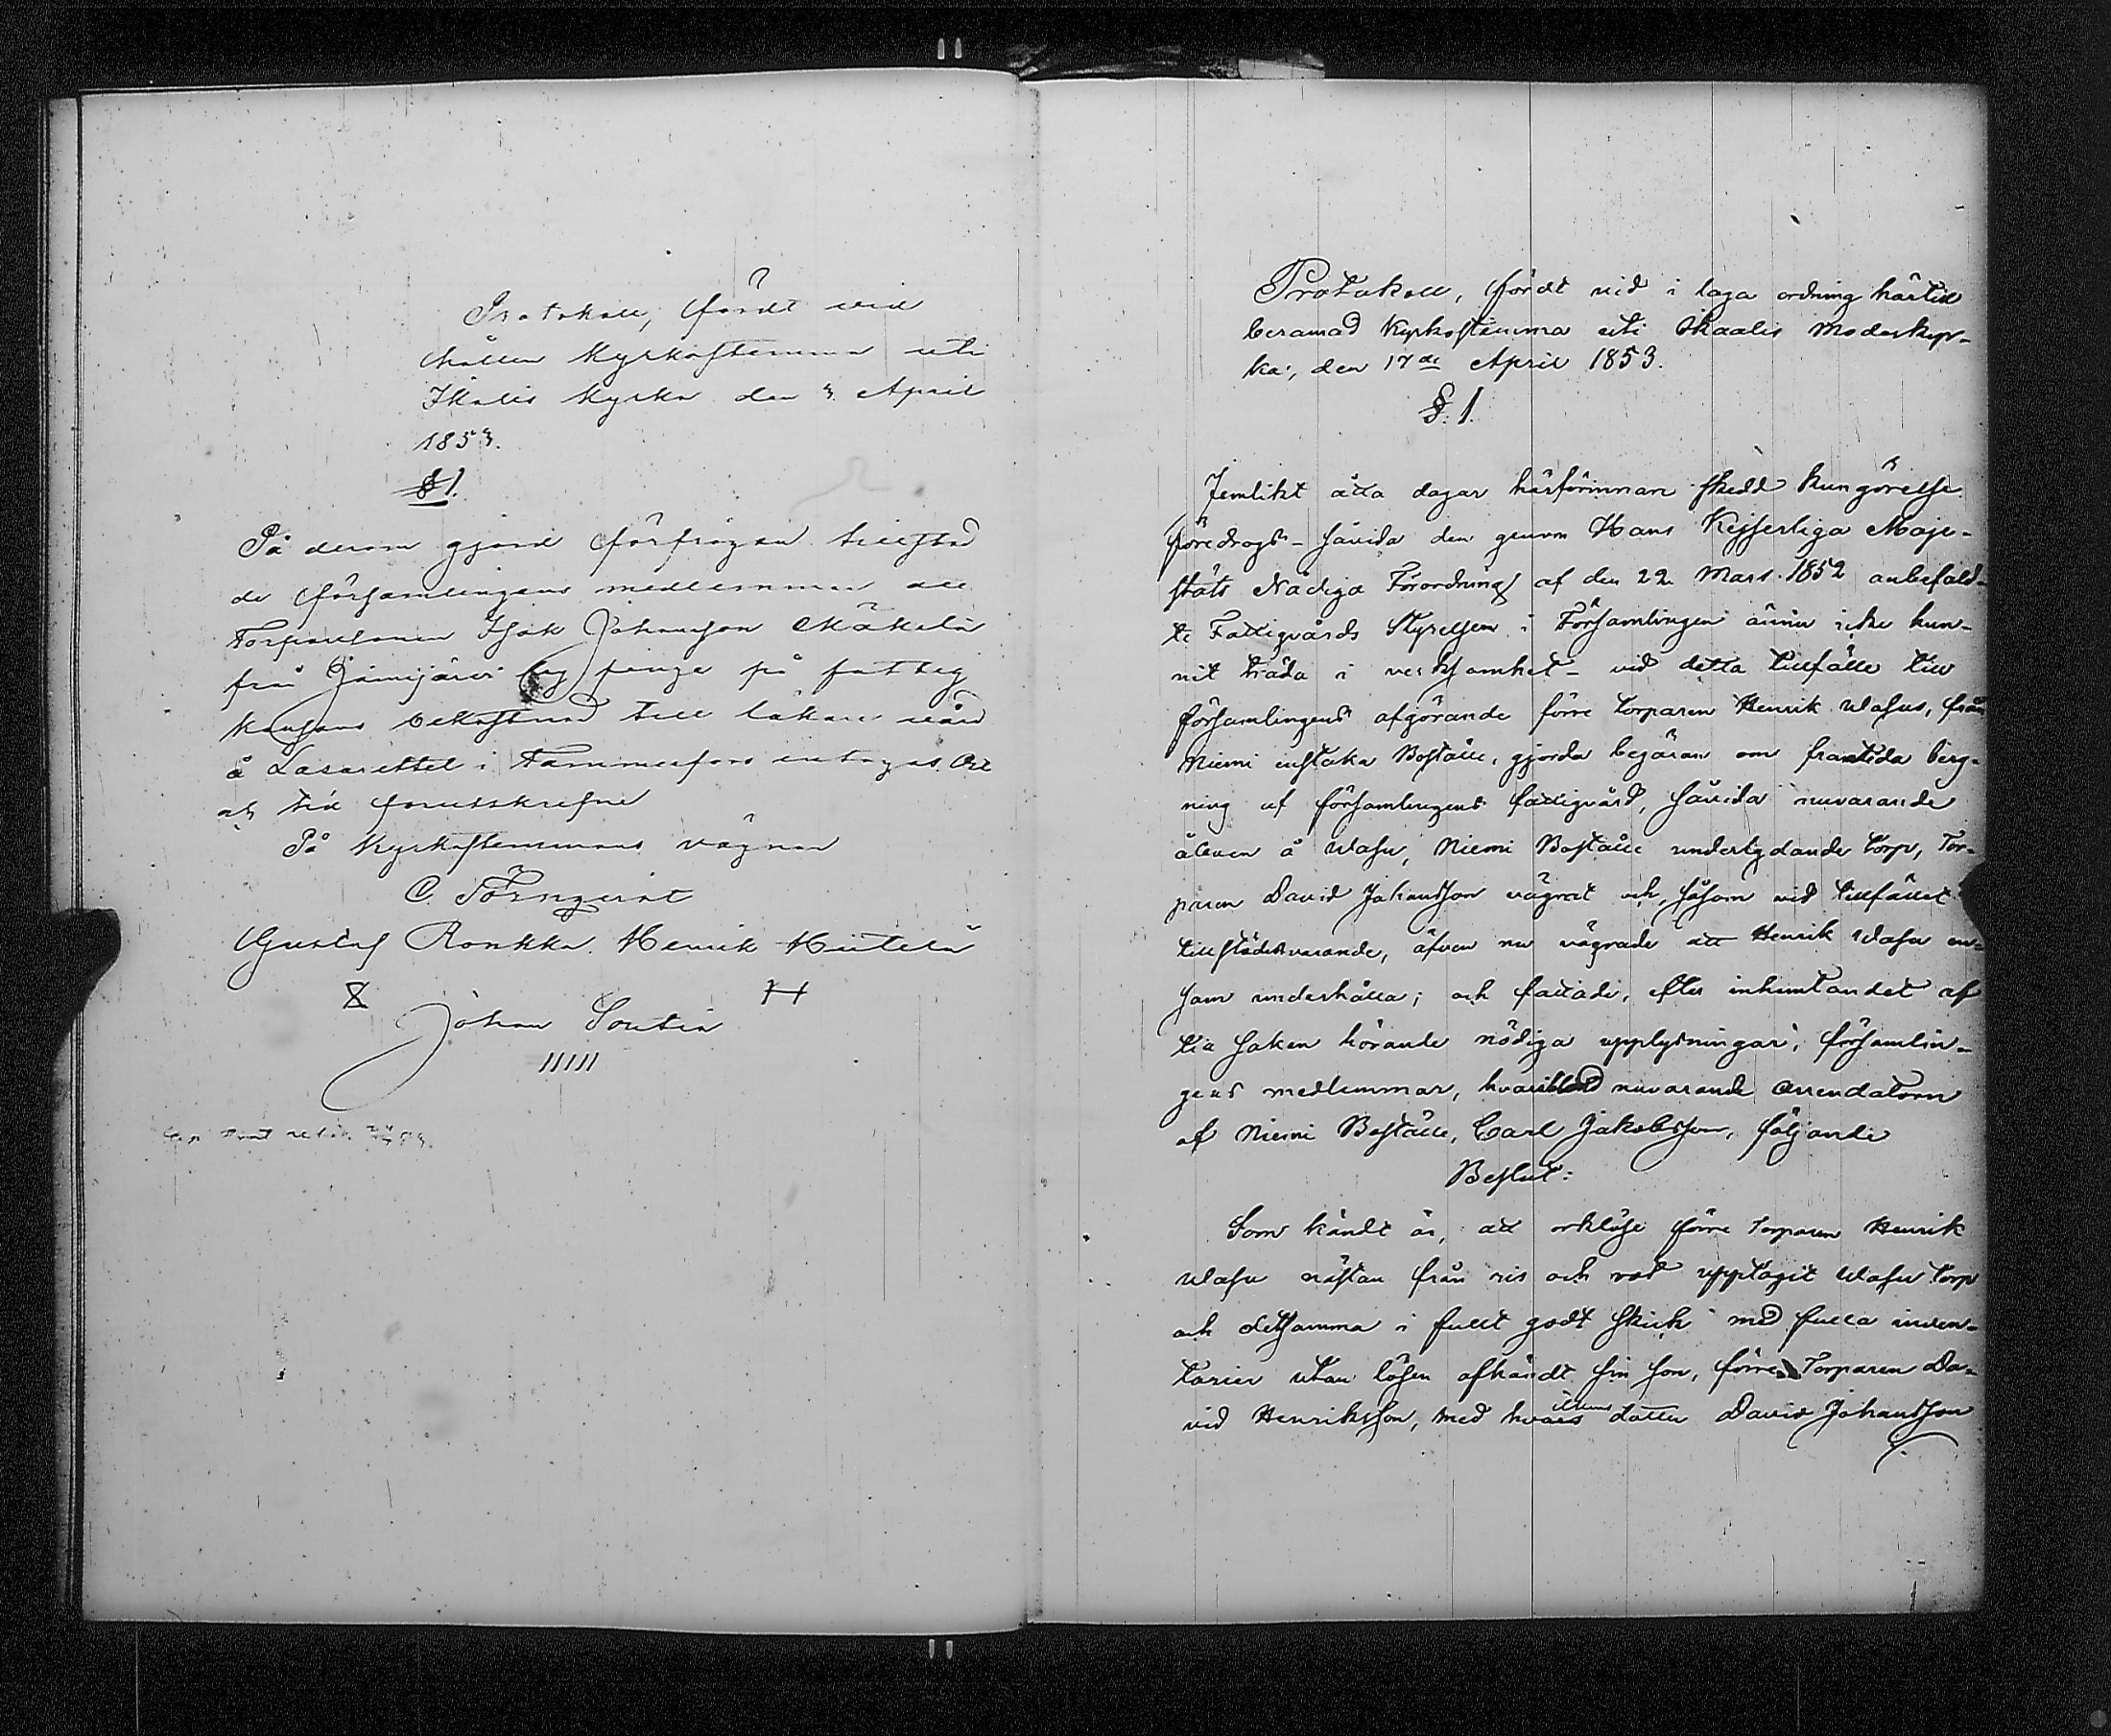 Protokoll, fördt vid
hållen Kyrkostemma uti
Ikalis Kyrka den 3. April
1853.
§ 1.
På derom gjord förfrågan tillstad
de församlingens medlemmar att
Torparesonen Isak Johansson Mäkelä
från Jämijärvi by finge på fattig
kassans bekostnad till läkare vård
å Lasarettet i Tammerfors intagas.
tid förutskrefne
På Kyrkostemmans vägnar
C. Törnqvist
Gustaf Ronkka. Henrik Hiitelä
Johan Soutia
Protokoll, fördt vid i laga ordning härtill
beramad Kyrkostemma uti Ikaalis Moderkyr-
ka, den 17de April 1853.
§. 1.
Jemlikt åtta dagar härförinnan skedd kungörelse
föredrogs - såvida den genom Hans Kejserliga Maje-
stäts Nådiga Förordning af den 22 Mars 1852 anbefald-
te Fattigvårds Styrelsen i Församlingen ännu icke kun-
nit träda i verksamhet - vid detta tillfälle till
församlingens afgörande förre torparen Henrik Wasus, från
Niemi enstaka Boställe, gjorda begäran om framtida berg-
ning af församlingens fattigvård, såvida nuvarande
åboen å Wasu, Niemi Boställe underlydande torp, Tor-
paren David Johansson vägrat och, såsom vid tillfället
tillstädesvarande, äfven nu vägrade att Henrik Wasu en-
sam underhålla; och fattade, efter inhemtandet af
till saken hörande nödiga upplysningar, församlin-
gens medlemmar, hvaribland nuvarande arrendatorn
af Niemi Boställe, Carl Jakobsson, följande
Beslut:
Som kändt är, att orklöse förre torparen Henrik
Wasu nästan från ris och rot upptagit Wasu torp
och detsamma i fullt godt skick med fulla inven-
tarier utan lösen afhändt sin son, förre Torparen Da-
vid Henriksson, med hvars dotter David Johansson